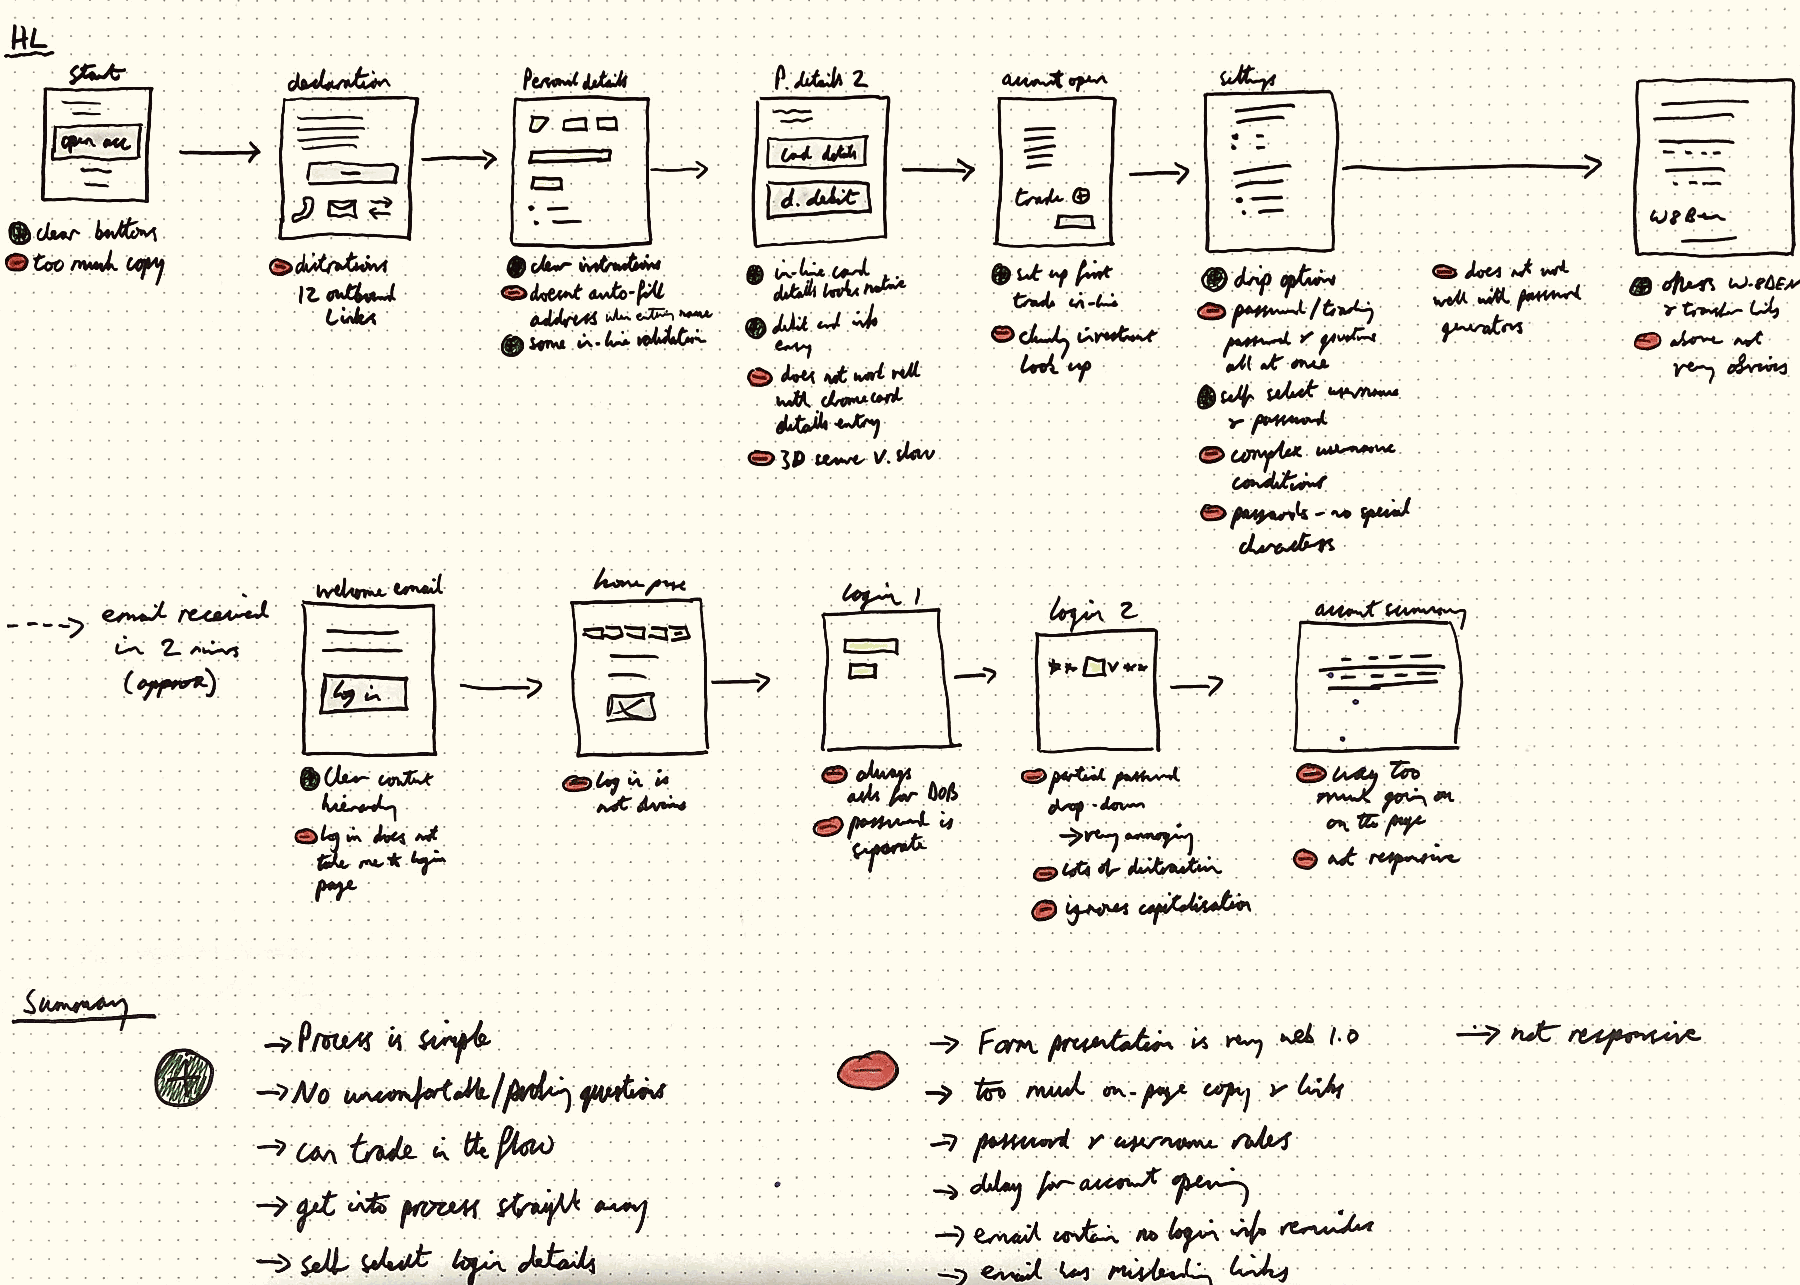 HL
start
open acc
clear buttons
too much copy
declaration
distrations
12 outbound
Links
Personal details
clear instructions
doesnt auto-fill
address when entering name
some in-line validation
P. details 2
card details
d. debit
in-line card
details looks native
debit card info
easy
does not work well
with chrome card
details entry
3D secure v. slow
account open
trade
set up first
trade in-line
clunky investment
look up
settings
drip options
password/trading
password & questions
all at once
self select username
& password
complex username
conditions
passwords - no special
characters
does not work
well with password
generators
W8Ben
offers W-8BEN
& transfer links
above not
very obvious
email received
in 2 mins
(approx)
welcome email
log in
Clear content
hierachy
log in does not
take me to login
page
home page
log in is
not obvious
login 1
always
asks for DOB
password is
separate
login 2
partial password
drop-down
→ very annoying
lots of distraction
ignores capitalisation
account summary
way too
much going on
on the page
not responsive
Summary
→ Process is simple
→ No uncomfortable/probing questions
→ can trade in the flow
→ get into process straight away
→ self select login details
→ Form presentation is very web 1.0
→ too much on-page copy & links
→ password & username rules
→ delay for account opening
→ email contain no login info reminder
→ email has misleading links
→ not responsive